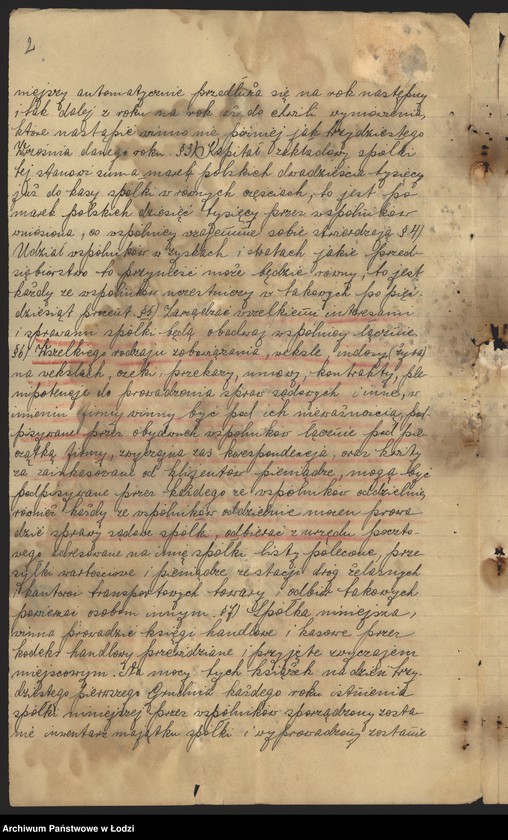 2
niejszy automatycznie przedłuża się na rok następny
i tak dalej z roku na rok aż do chwili wymówienia,
które nastąpić winno nie później jak trzydziestego
Września danego roku. §3) Kapitał zakładowy spółki
tej stanowi suma marek polskich dwadzieścia tysięcy
już do kasy spółki w równych częściach, to jest po
marek polskich dziesięć tysięcy przez wspólników
wniesiona, co wspólnicy wzajemnie sobie stwierdzają §4)
Udział wspólników w zyskach i stratach jakie przed-
siębiorstwo to przynieść może będzie równy, to jest
każdy ze wspólników uczestniczy w takowych po pięć-
dziesiąt procent. §5) Zarządzać wszelkiemi interesami
i sprawami spółki będą obydwaj wspólnicy łącznie.
§6) Wszelkiego rodzaju zobowiązania, veksle, indosy (żyra)
na vekslach, czeki, przekazy, umowy, kontrakty, ple-
nipotencje do prowadzenia spraw sądowych i inne, w
imieniu firmy winny być pod ich nieważnością, pod-
pisywane przez obydwóch wspólników łącznie pod pie-
czątką firmy, zwyczajna zaś korespondencja, oraz kwity
za zainkasowane od klijentów pieniądze, mogą być
podpisywane przez każdego ze wspólników oddzielnie,
również każdy ze wspólników oddzielnie mocen prowa-
dzić sprawy sądowe spółki, odbierać z urzędu poczto-
wego adresowane na imię spółki listy polecone, prze-
syłki wartościowe i pieniądze ze stacji dróg żelaznych
i kantorów transportowych towary i odbiór takowych
powierzać osobom innym. §7) Spółka niniejsza,
winna prowadzić księgi handlowe i kasowe przez
kodeks handlowy przewidziane i przyjęte zwyczajem
miejscowym. Na mocy tych książek na dzień trzy-
dziestego pierwszego Grudnia każdego roku istnienia
spółki niniejszej przez wspólników sporządzony zosta-
nie inwentarz majątku spółki i wyprowadzony zostanie
Archiwum Państwowe w Łodzi